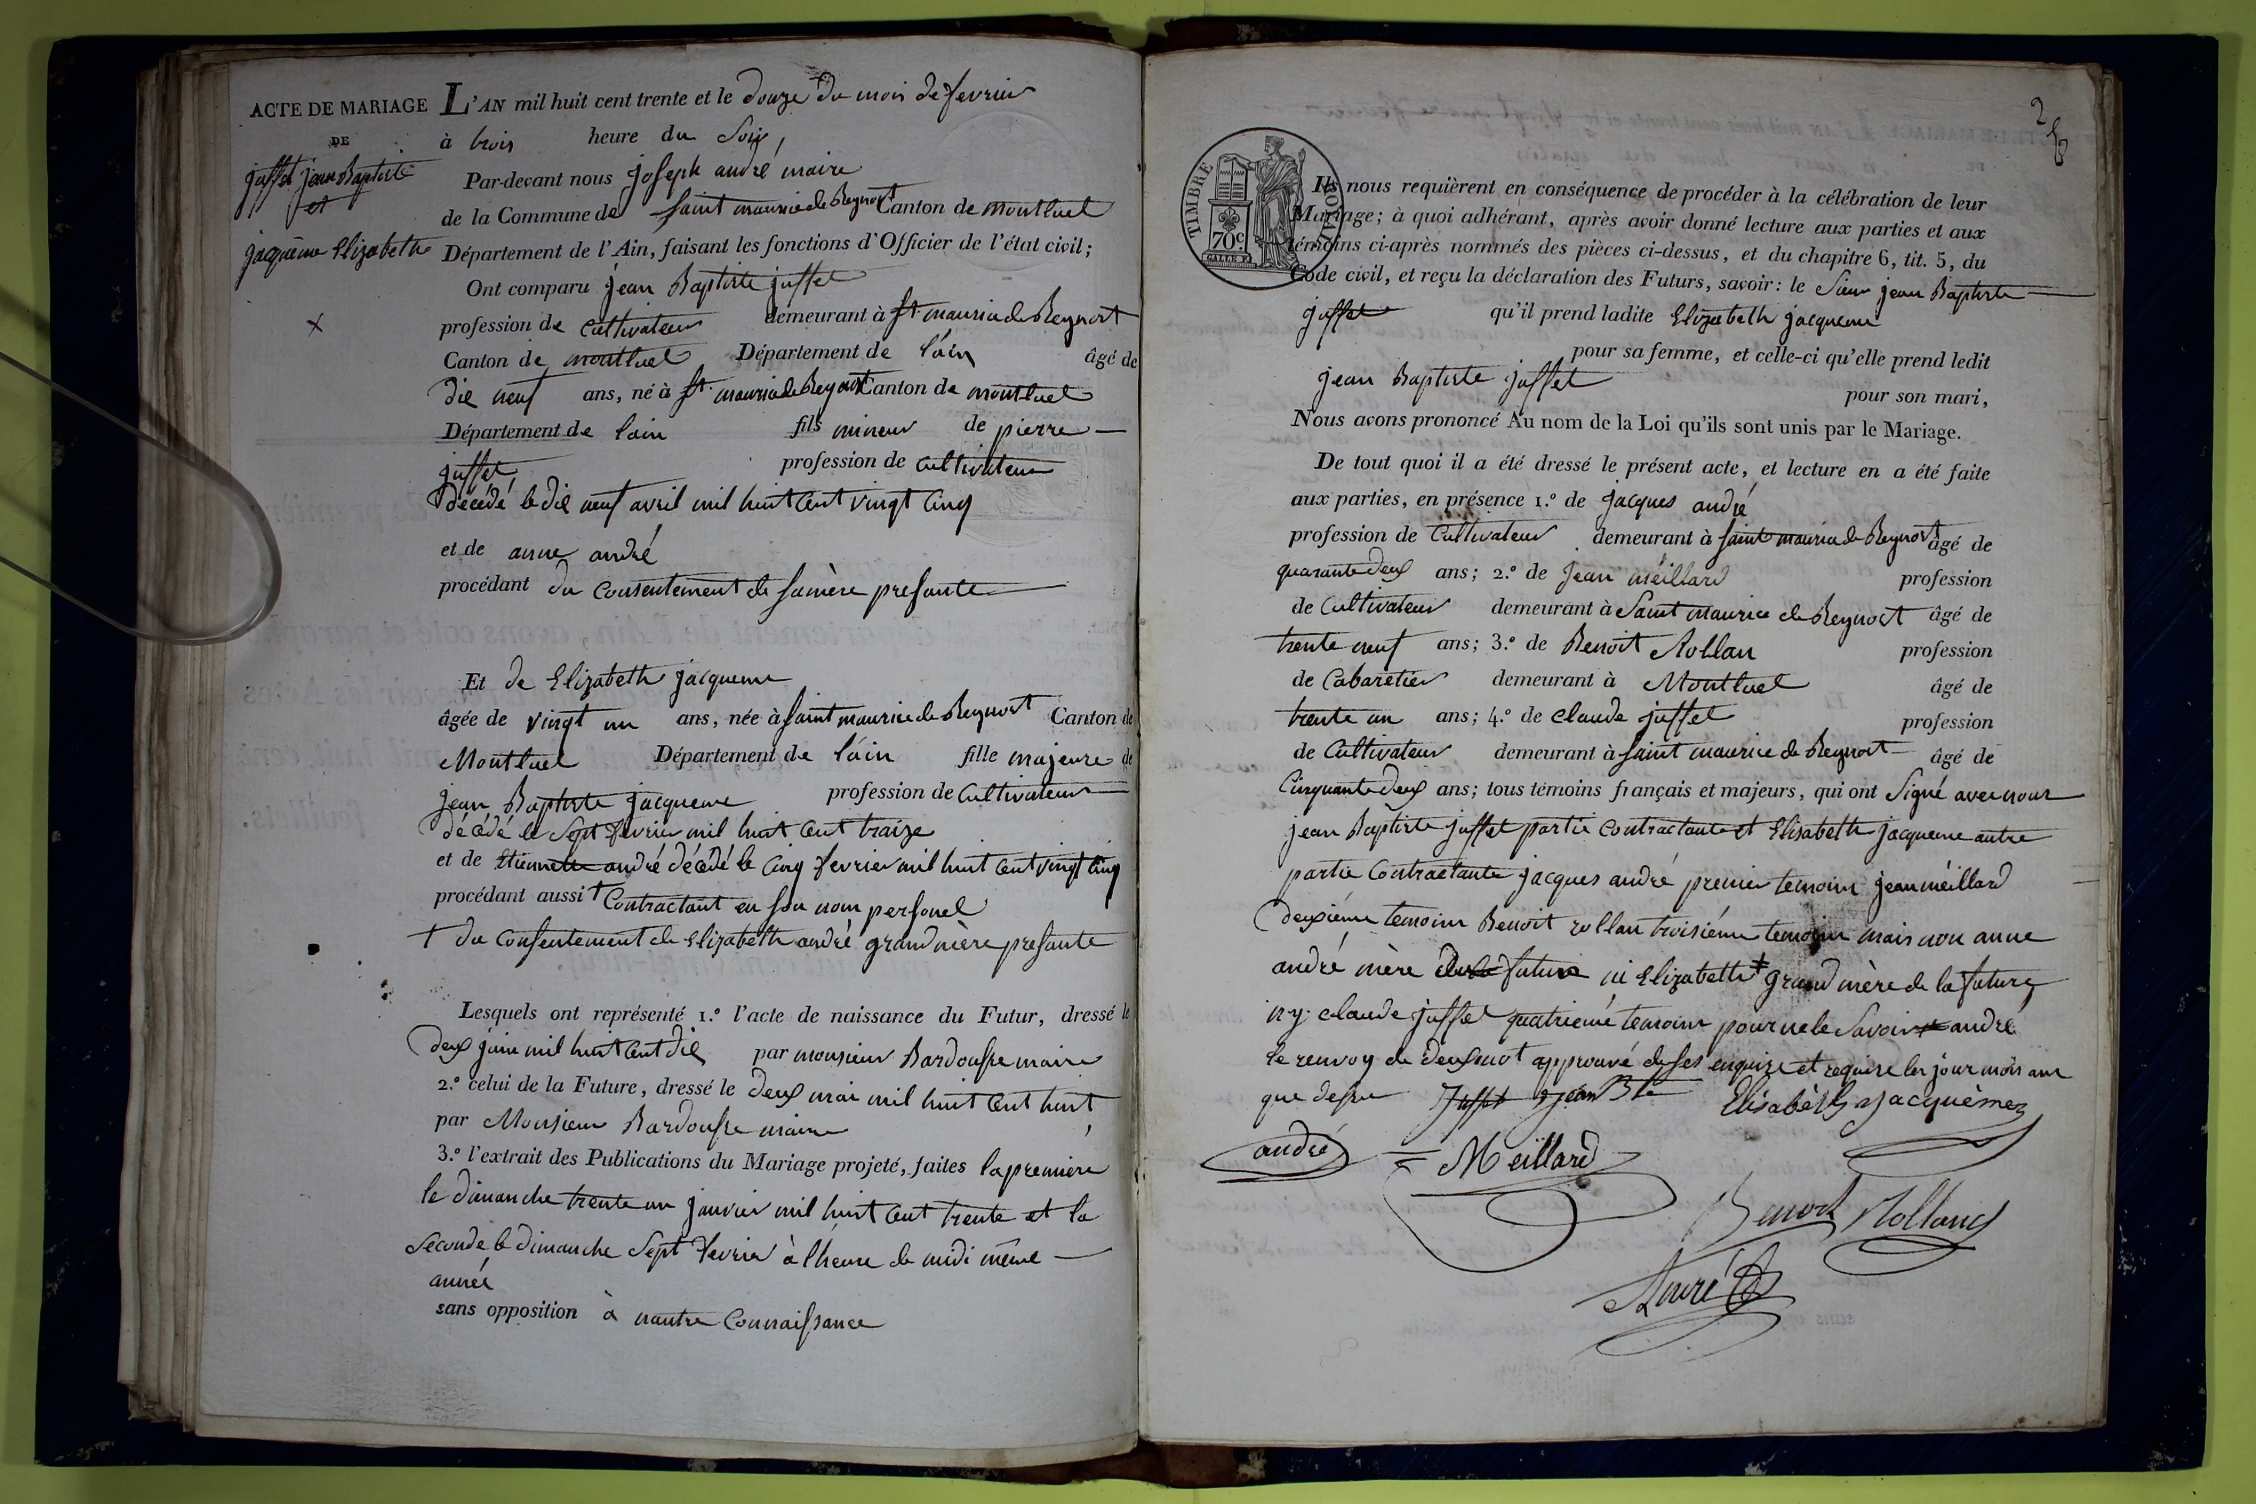 ACTE DE MARIAGE
DE
juffet jean Baptiste
et
jacquême Elizabeth
L'AN mil huit cent trente et le douze du mois de fevrier
à trois heure du Soir,
Par-devant nous joseph andré maire
de la Commune de saint maurice de Beynost Canton de montluel
Département de l'Ain, faisant les fonctions d'Officier de l'état civil;
Ont comparu jean Baptiste juffet
profession de Cultivateur demeurant à st maurice de Beynost
Canton de montluel Département de l'áin âgé de
dix neuf ans, né à st. maurice de Beynost Canton de montluel
Département de lain fils mineur de pierre
juffet profession de cultivateur
décédé le dix neuf avril mil huit cent vingt cinq
et de anne andré
procédant du consentement de samère presante
Et de Elizabeth jacqueme
âgée de vingt un ans, née à saint maurice de Beynost Canton de
Montluel Département de l'áin fille majeure de
jean Baptiste jacqueme profession de Cultivateur
décédé le Sept fevrier mil huit cent traize
et de Etiennette andré décédé le cinq fevrier mil huit cent vingt cinq
procédant aussi † Contractant en son nom personel
† du consentement de Elizabeth andré grandmère presante
Lesquels ont représenté 1.º l'acte de naissance du Futur, dressé le
deux juin mil huit cent dix par monsieur Bardousse maire
2.º celui de la Future, dressé le deux mai mil huit cent huit
par Monsieur Bardousse maire
3.º l'extrait des Publications du Mariage projeté, faites lapremière
le dimanche trente un janvier mil huit cent trente et la
seconde le dimanche Sept fevrier à lheure de midi même
année
sans opposition à nautre Connaissance
26
TIMBRE ROYAL
70 c.
Ils nous requièrent en conséquence de procéder à la célébration de leur
Mariage; à quoi adhérant, après avoir donné lecture aux parties et aux
témoins ci-après nommés des pièces ci-dessus, et du chapitre 6, tit. 5, du
Code civil, et reçu la déclaration des Futurs, savoir: le Sieur jean Baptiste
juffet qu'il prend ladite Elizabeth jacqueme
pour sa femme, et celle-ci qu'elle prend ledit
jean Baptiste juffet
pour son mari,
Nous avons prononcé Au nom de la Loi qu'ils sont unis par le Mariage.
De tout quoi il a été dressé le présent acte, et lecture en a été faite
aux parties, en présence 1.º de jacques andré
profession de Cultivateur demeurant à saint maurice de Beynost âgé de
quarante deux ans; 2.º de jean méillard profession
de Cultivateur demeurant à Saint maurice de Beynost âgé de
trente neuf ans; 3.º de Benoit Rollan profession
de Cabaretier demeurant à Montluel âgé de
trente un ans; 4.º de claude juffet profession
de Cultivateur demeurant à saint maurice de Beynost âgé de
Cinquante deux ans; tous témoins français et majeurs, qui ont Signé avec nous
jean Baptiste juffet partie contractante et Elisabeth jacqueme autre
partie Contractante jacques andré premier temoins jean méillard
deuxiéme temoins Benoit rollan troisiéme temoins mais non anne
andré mère de la future ni Elizabeth ‡ grand mère de la future
n y claude juffet quatriémé temoins pour ne le Savoir ‡ andré
le renvoy de deux mot approuvé de ses enquire et requise les jour mois an
que dessu Juffet jean Bte Elisabèth Jacquèmez
andré Meïllard
Benoit Rolland
André